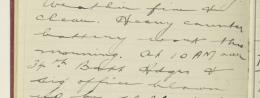 Weather fine &
clear. Heavy counter
battery work this
morning. At 10 AM our
Batt Hdqrs &
sig office blown